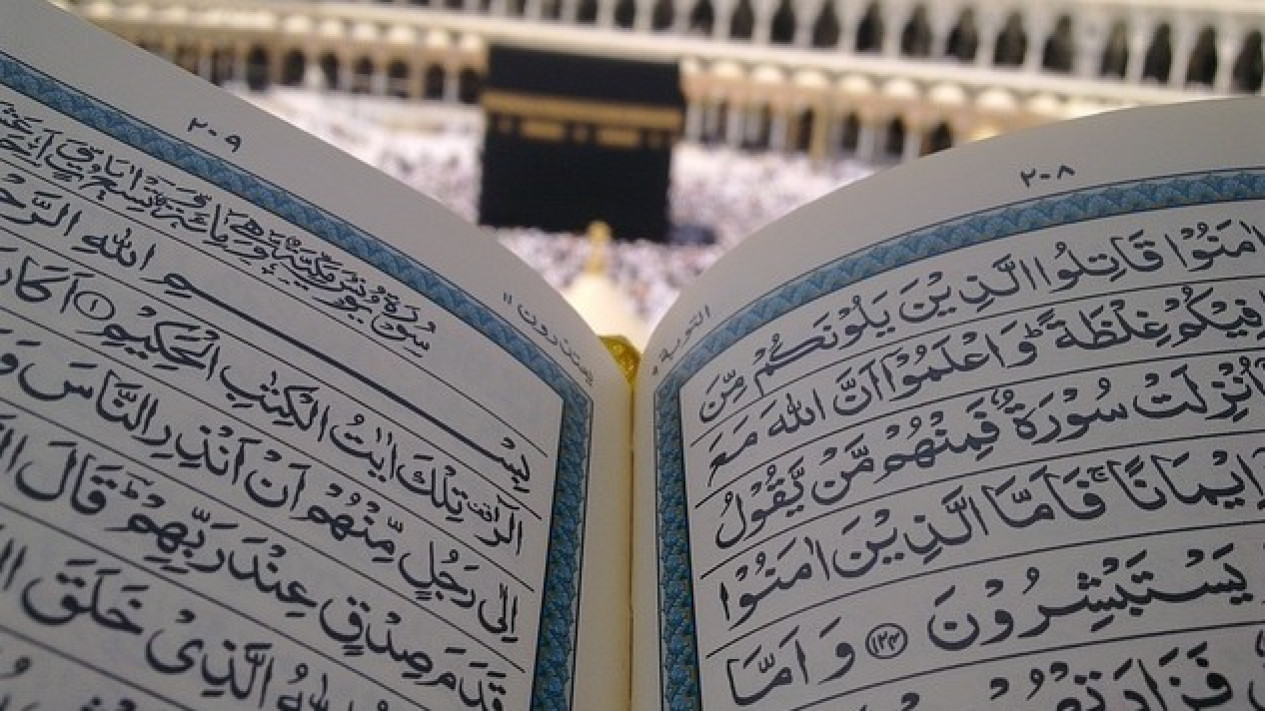 ٢٠٨
التوبة ٩
اٰمَنُوْا قَاتِلُوا الَّذِيْنَ يَلُوْنَكُمْ مِّنَ
فِيْكُمْ غِلْظَةً ؕ وَ اعْلَمُوْۤا اَنَّ اللّٰهَ مَعَ
اُنْزِلَتْ سُوْرَةٌ فَمِنْهُمْ مَّنْ يَّقُوْلُ
اِيْمَانًا ۚ فَاَمَّا الَّذِيْنَ اٰمَنُوْا
يَسْتَبْشِرُوْنَ ﴿١٢٤﴾ وَ اَمَّا
فَزَادَتْهُمْ
٢٠٩
يعتذرون ١١
سُوْرَةُ يُوْنُسَ مَكِّيَّةٌ وَّهِىَ مِائَةٌ وَّتِسْعُ اٰيَاتٍ
بِسْمِ اللّٰهِ الرَّحْ
الٓرٰ تِلْكَ اٰيٰتُ الْكِتٰبِ الْحَكِيْمِ ﴿١﴾ اَكَانَ
اِلٰى رَجُلٍ مِّنْهُمْ اَنْ اَنْذِرِ النَّاسَ وَ
قَدَمَ صِدْقٍ عِنْدَ رَبِّهِمْ ؕ قَالَ
اللّٰهُ الَّذِىْ خَلَقَ